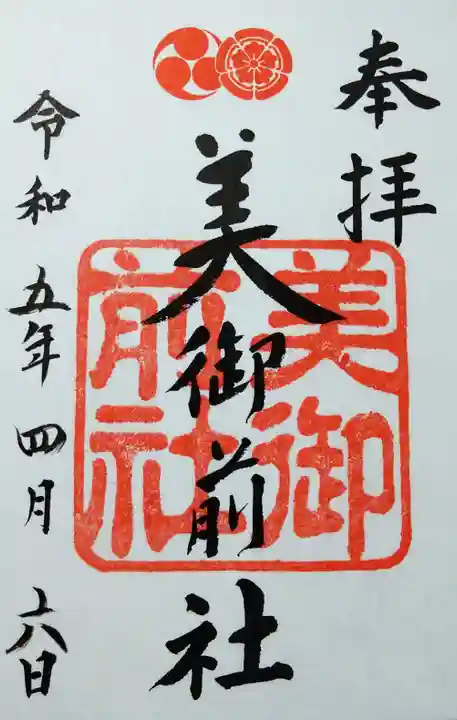 奉拝
美御前社
美御前社
令和五年四月十六日